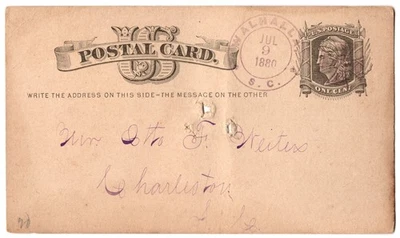 US
POSTAL CARD.
WALHALLA
JUL
9
1880
S. C.
U.S. POSTAGE
ONE CENT
WRITE THE ADDRESS ON THIS SIDE—THE MESSAGE ON THE OTHER
Otto F.
Charleston